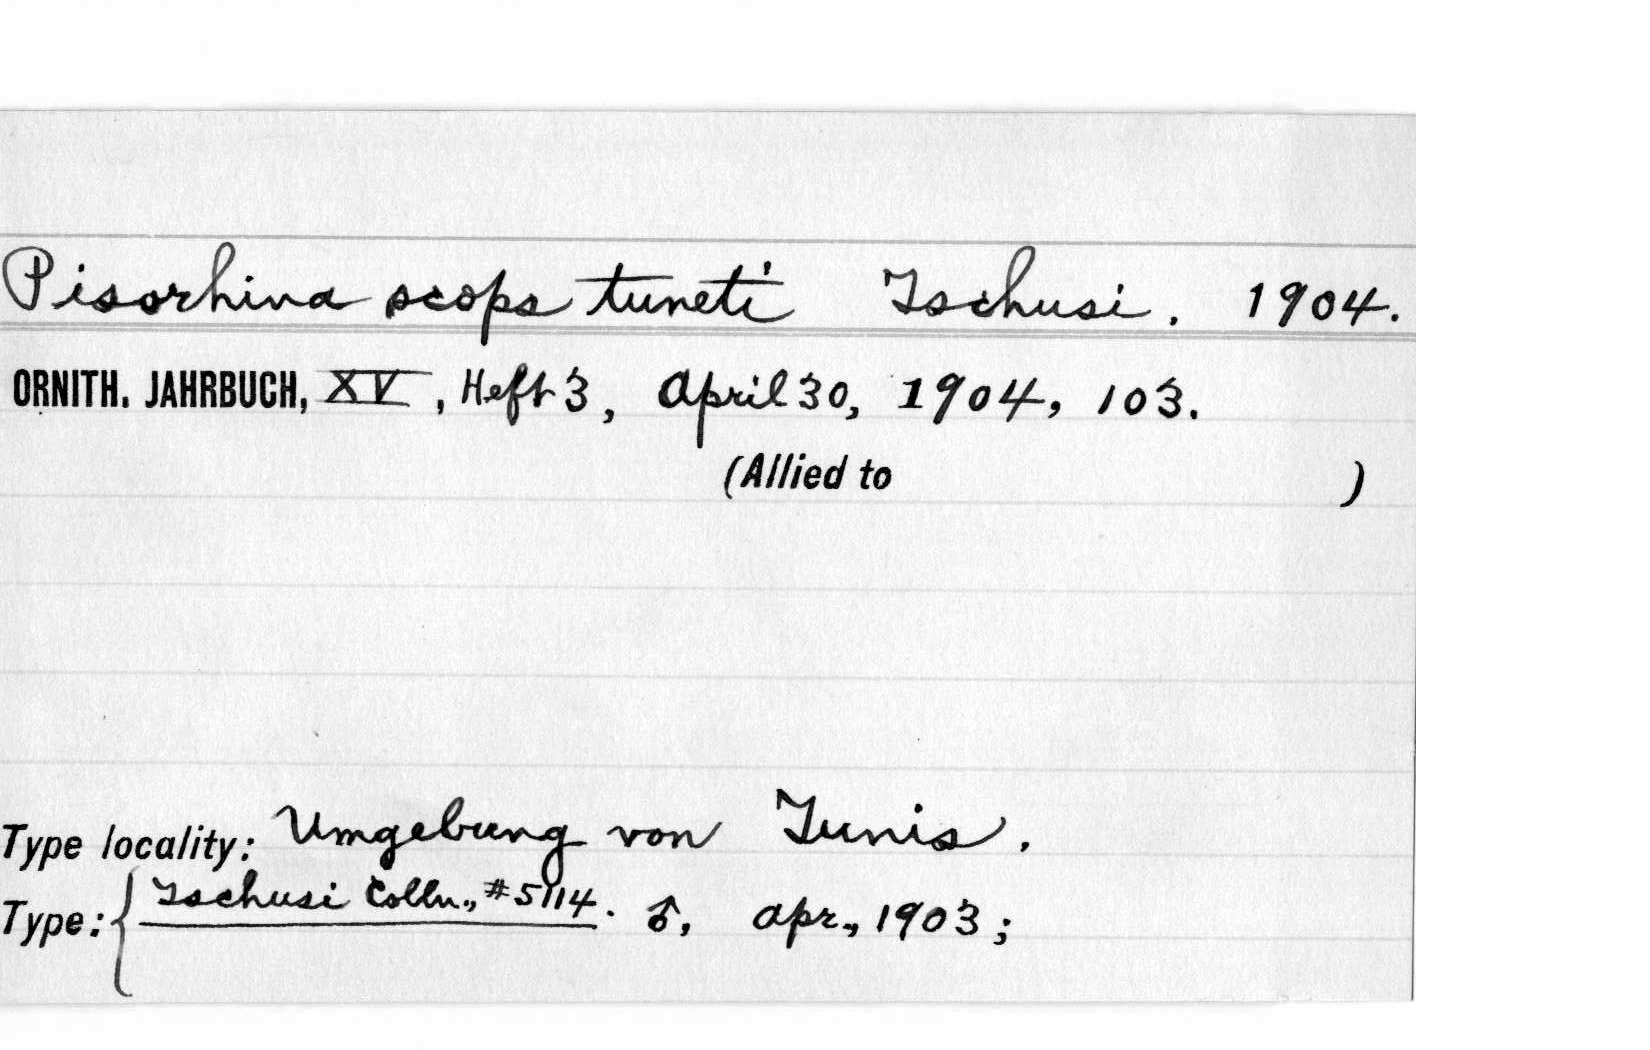 Pisorhina scops tuneti Tschusi. 1904.
ORNITH. JAHRBUCH, XV, Heft 3, April 30, 1904, 103.
(Allied to )
Type locality: Umgebung von Tunis.
Type: { Tschusi Colln., #5114. ♂, Apr., 1903;